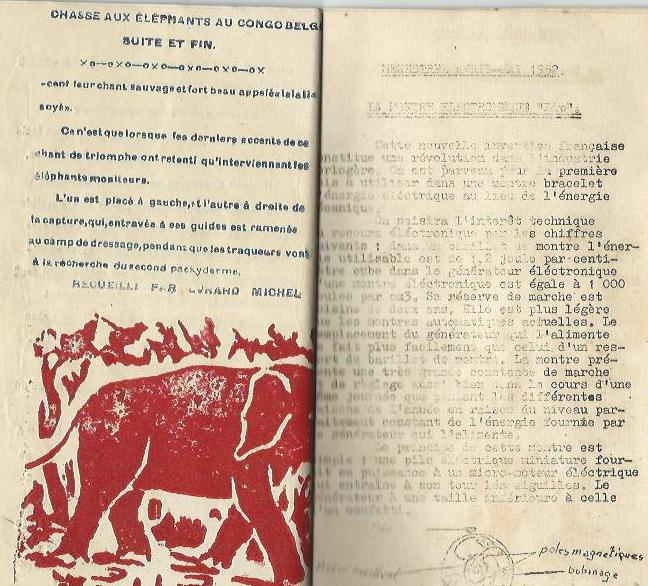 CHASSE AUX ÉLÉPHANTS AU CONGO BELG
SUITE ET FIN.
×o—o×o—o×o—o×o—o×
-cent leur chant sauvage et fort beau appelé«lalati-
soyé».
Ce n'est que lorsque les derniers accents de ce
chant de triomphe ont retenti qu'interviennent les
éléphants moniteurs.
L'un est placé à gauche, et l'autre à droite de
la capture, qui, entravés à ses guides est ramenés
au camp de dressage, pendant que les traqueurs vont
à la recherche du second packyderme.
RECUEILLI PAR EVRARD MICHEL
1952.
LA MONTRE ELECTRONIQUE
Cette nouvelle invention française
nstitue une révolution dans l'industrie
rlogère. On est parvenu pour la première
is à utiliser dans une montre bracelet
énergie électrique au lieu de l'énergie
canique.
On saisira l'intérêt technique
recours électronique par les chiffres
ivants : dans un barillet de montre l'éner-
ie utilisable est de 1.2 joule par centi-
tre cube dans le générateur électronique
une montre électronique est égale à 1 000
oules par cm3. Sa réserve de marche est
oisine de deux ans. Elle est plus légère
e les montres automatiques actuelles. Le
mplacement du générateur qui l'alimente
fait plus facilement que celui d'un res-
rt de barillet de montre. La montre pré-
nte une très grande constance de marche
de réglage aussi bien dans le cours d'une
me journée que pendant les différentes
aisons de l'année en raison du niveau par-
aitement constant de l'énergie fournie par
générateur qui l'alimente.
Le principe de cette montre est
imple : une pile électrique miniature four-
it sa puissance à un micro-moteur électrique
entraîne à son tour les aiguilles. Le
énérateur a une taille inférieure à celle
'un confetti.
poles magnetiques
bobinage